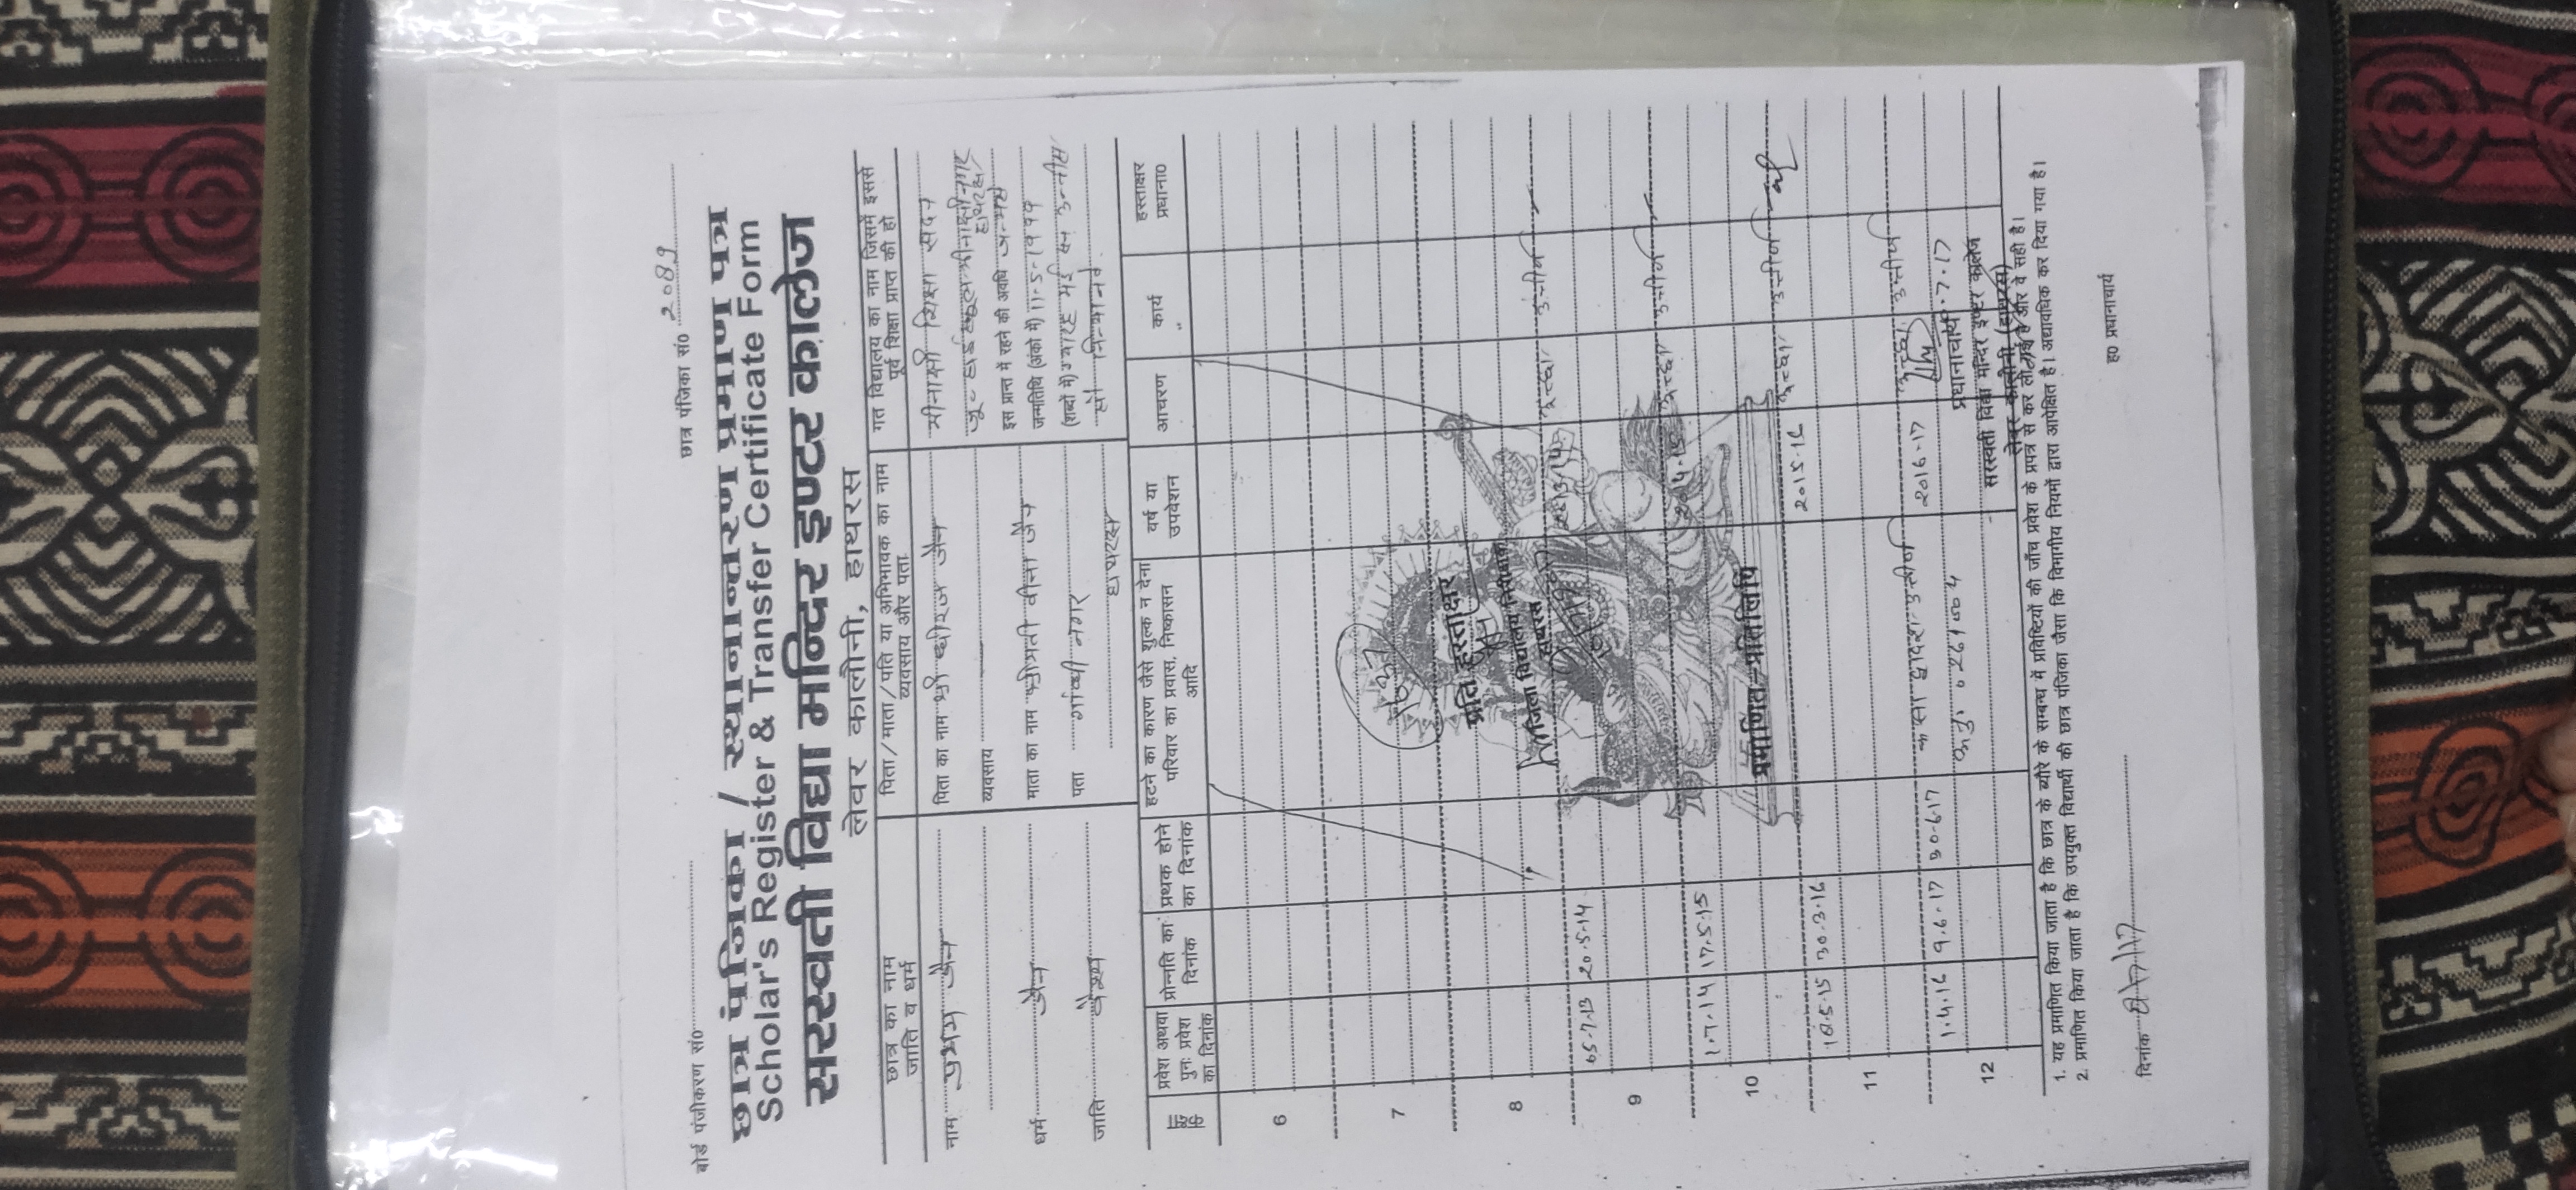 छात्र पंजिका सं0 2089
बोर्ड पंजीकरण सं0
छात्र पंजिका / स्थानान्तरण प्रमाण पत्र
Scholar's Register & Transfer Certificate Form
सरस्वती विद्या मन्दिर इण्टर कालेज
लेवर कालौनी, हाथरस
छात्र का नाम जाति व धर्म
पिता/माता/पति या अभिभावक का नाम व्यवसाय और पता
गत विद्यालय का नाम जिसमें इससे पूर्व शिक्षा प्राप्त की हो
नाम जैन
पिता का नाम श्री धीरज जैन
मीनाक्षी शिक्षा सदन
व्यवसाय
जू० हाई स्कूल मीनाक्षी नगर हाथरस
इस प्रान्त में रहने की अवधि जन्म से
धर्म जैन
माता का नाम श्रीमती वीना जैन
जन्मतिथि (अंको में) 11-5-1999
जाति वैश्य
पता गांधी नगर
(शब्दों में) ग्यारह मई सन् उन्नीस
हाथरस
सौ निन्यानवे
कक्षा
प्रवेश अथवा पुनः प्रवेश का दिनांक
प्रोन्नति का दिनांक
प्रथक होने का दिनांक
हटने का कारण जैसे शुल्क न देना परिवार का प्रवास, निष्कासन आदि
वर्ष या उपवेशन
आचरण
कार्य
हस्ताक्षर प्रधाना0
6
7
प्रति हस्ताक्षर
8
जिला विद्यालय निरीक्षक
हाथरस
अच्छा उत्तीर्ण
9
05.7.13 20.5.14
2014-15 अच्छा उत्तीर्ण
10
1.7.14 17.5.15
प्रमाणित-प्रतिलिपि
2015-16 अच्छा उत्तीर्ण
11
18.5.15 30.3.16
12
1.4.16 9.6.17 30-6-17
कक्षा द्वादश उत्तीर्ण
2016-17 अच्छा उत्तीर्ण
प्रधानाचार्य
सरस्वती विद्या मन्दिर इण्टर कालेज
लेबर कालौनी (हाथरस)
1. यह प्रमाणित किया जाता है कि छात्र के ब्यौरे के सम्बन्ध में प्रविष्टियों की जाँच प्रवेश के प्रपत्र से कर ली गई है और वे सही है।
2. प्रमाणित किया जाता है कि उपयुक्त विद्यार्थी की छात्र पंजिका जैसा कि विभागीय नियमों द्वारा आपेक्षित है। अद्यावधिक कर दिया गया है।
दिनांक
ह0 प्रधानाचार्य